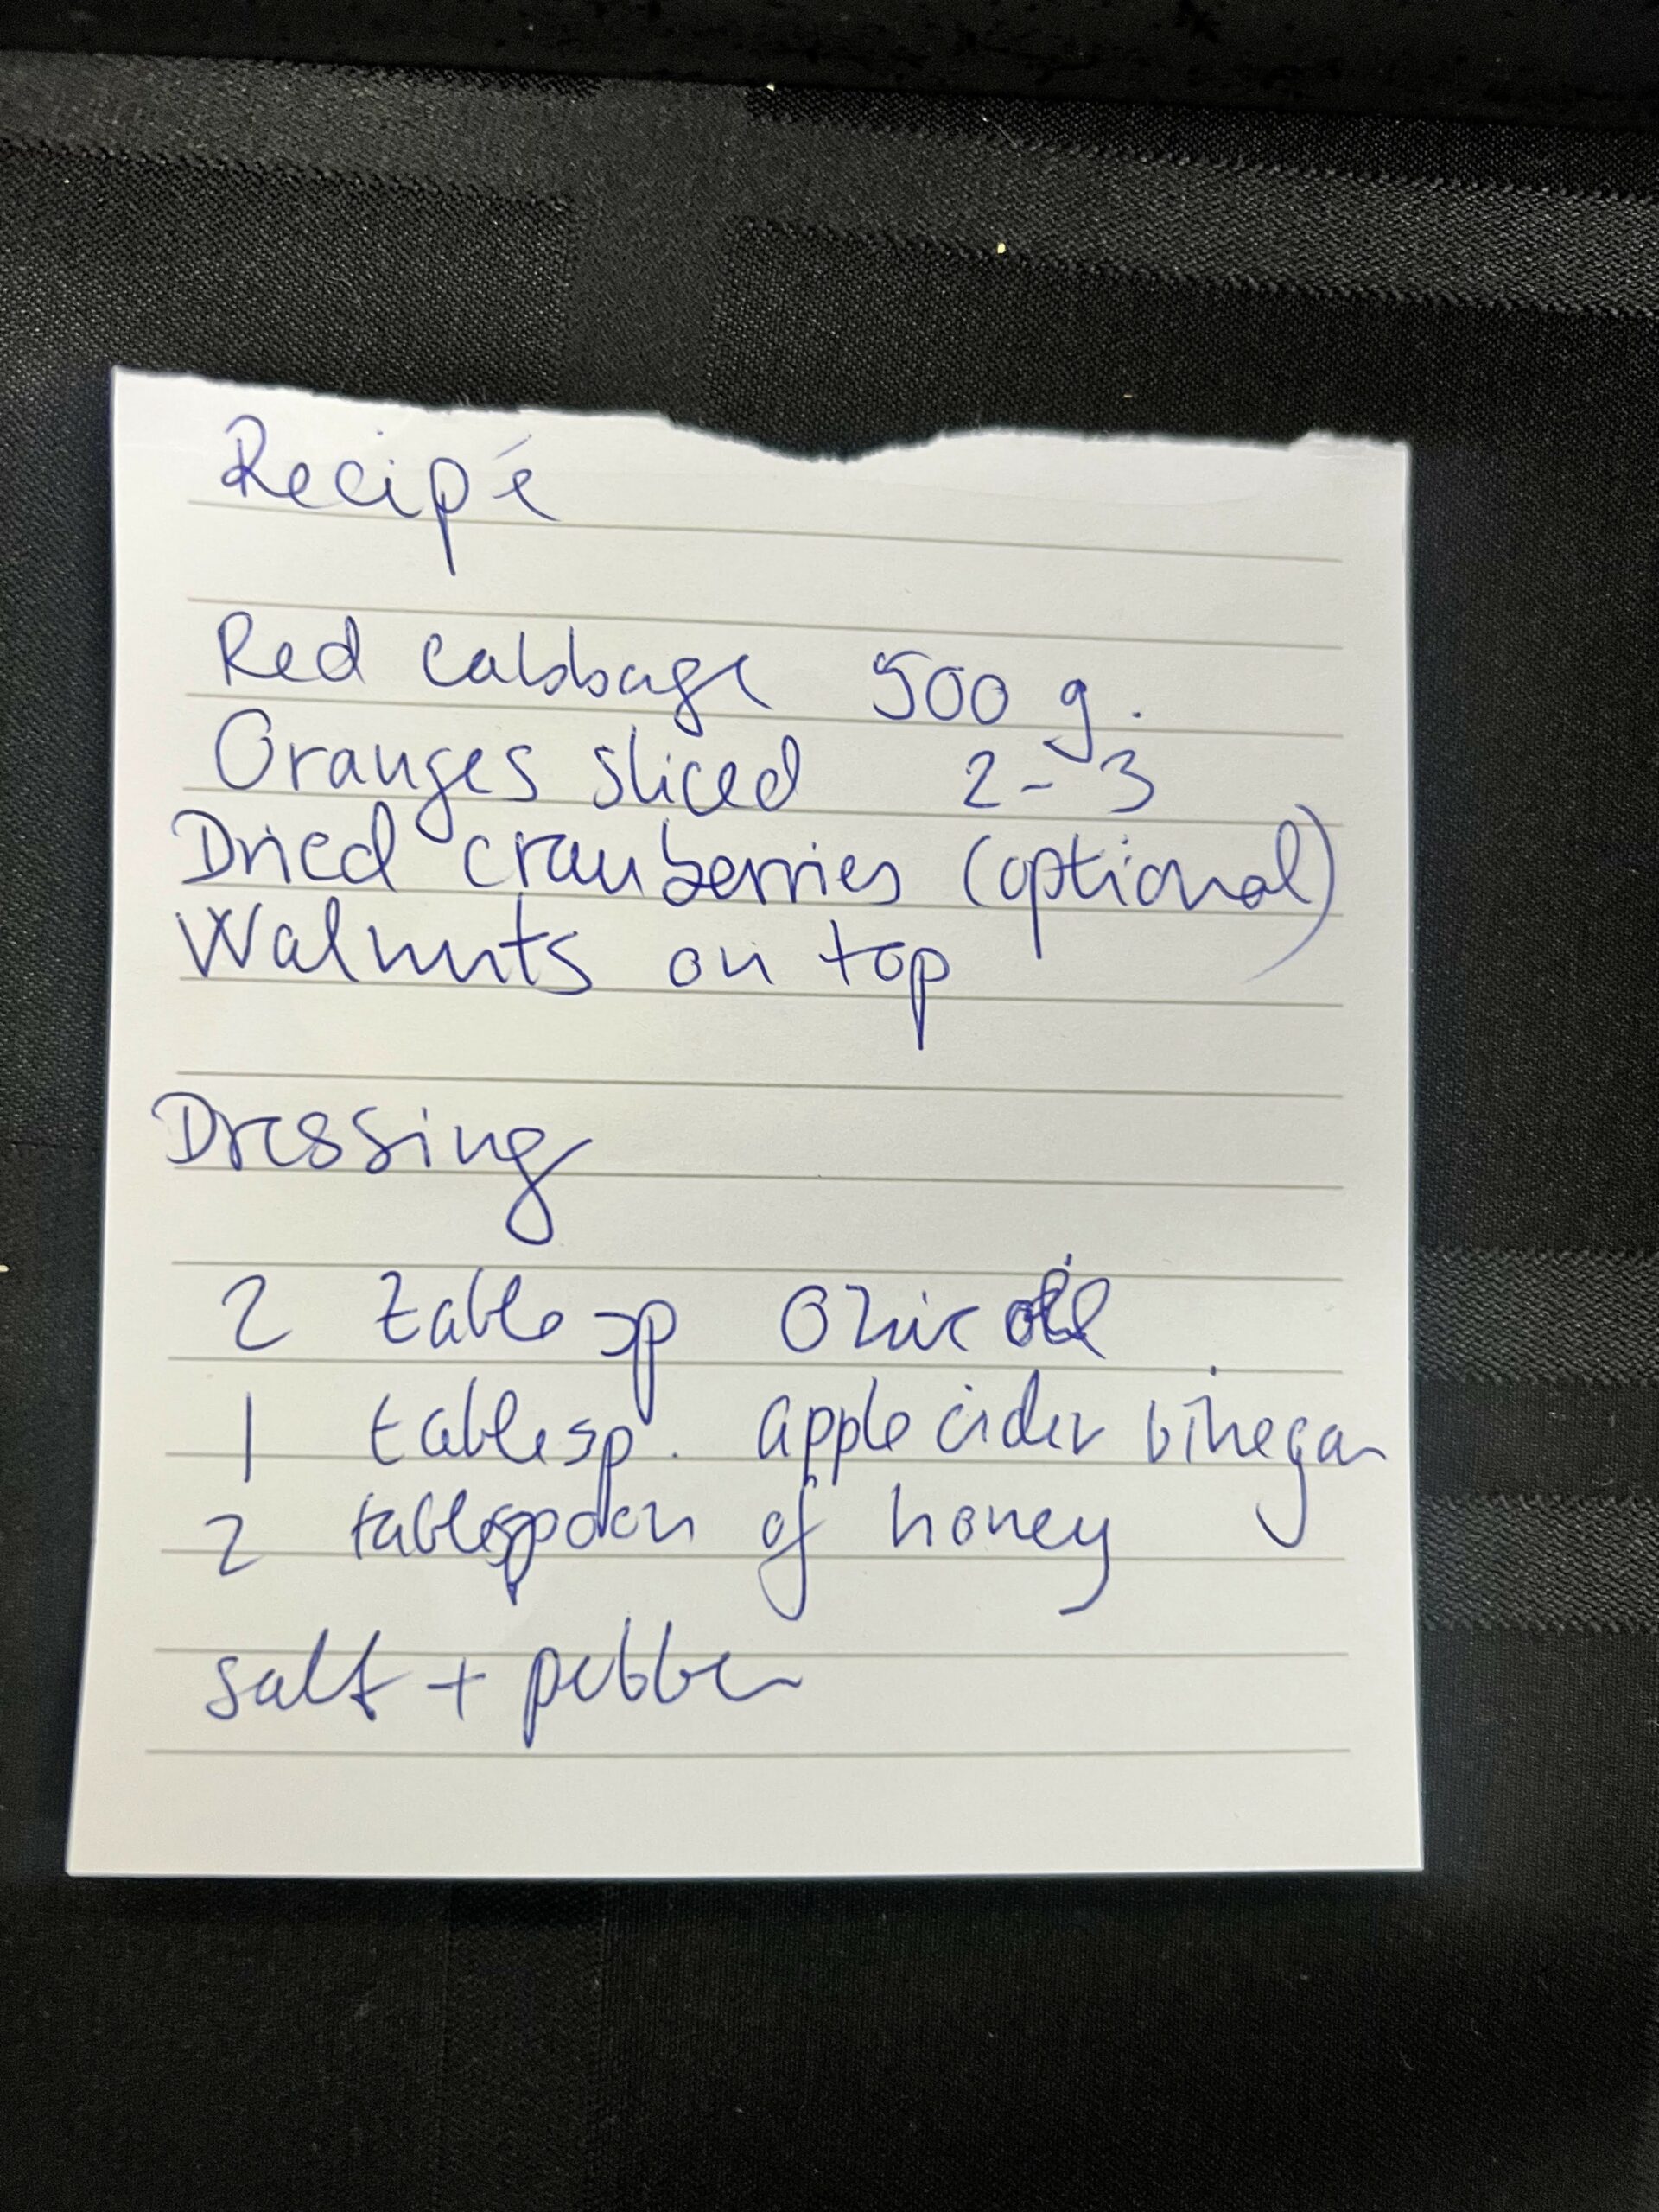 Recipé
Red cabbage 500 g.
Oranges sliced 2-3
Dried cranberries (optional)
Walnuts on top
Dressing
2 tablesp Olive oil
1 tablesp. apple cider vinegar
2 tablespoon of honey
salt + pebber